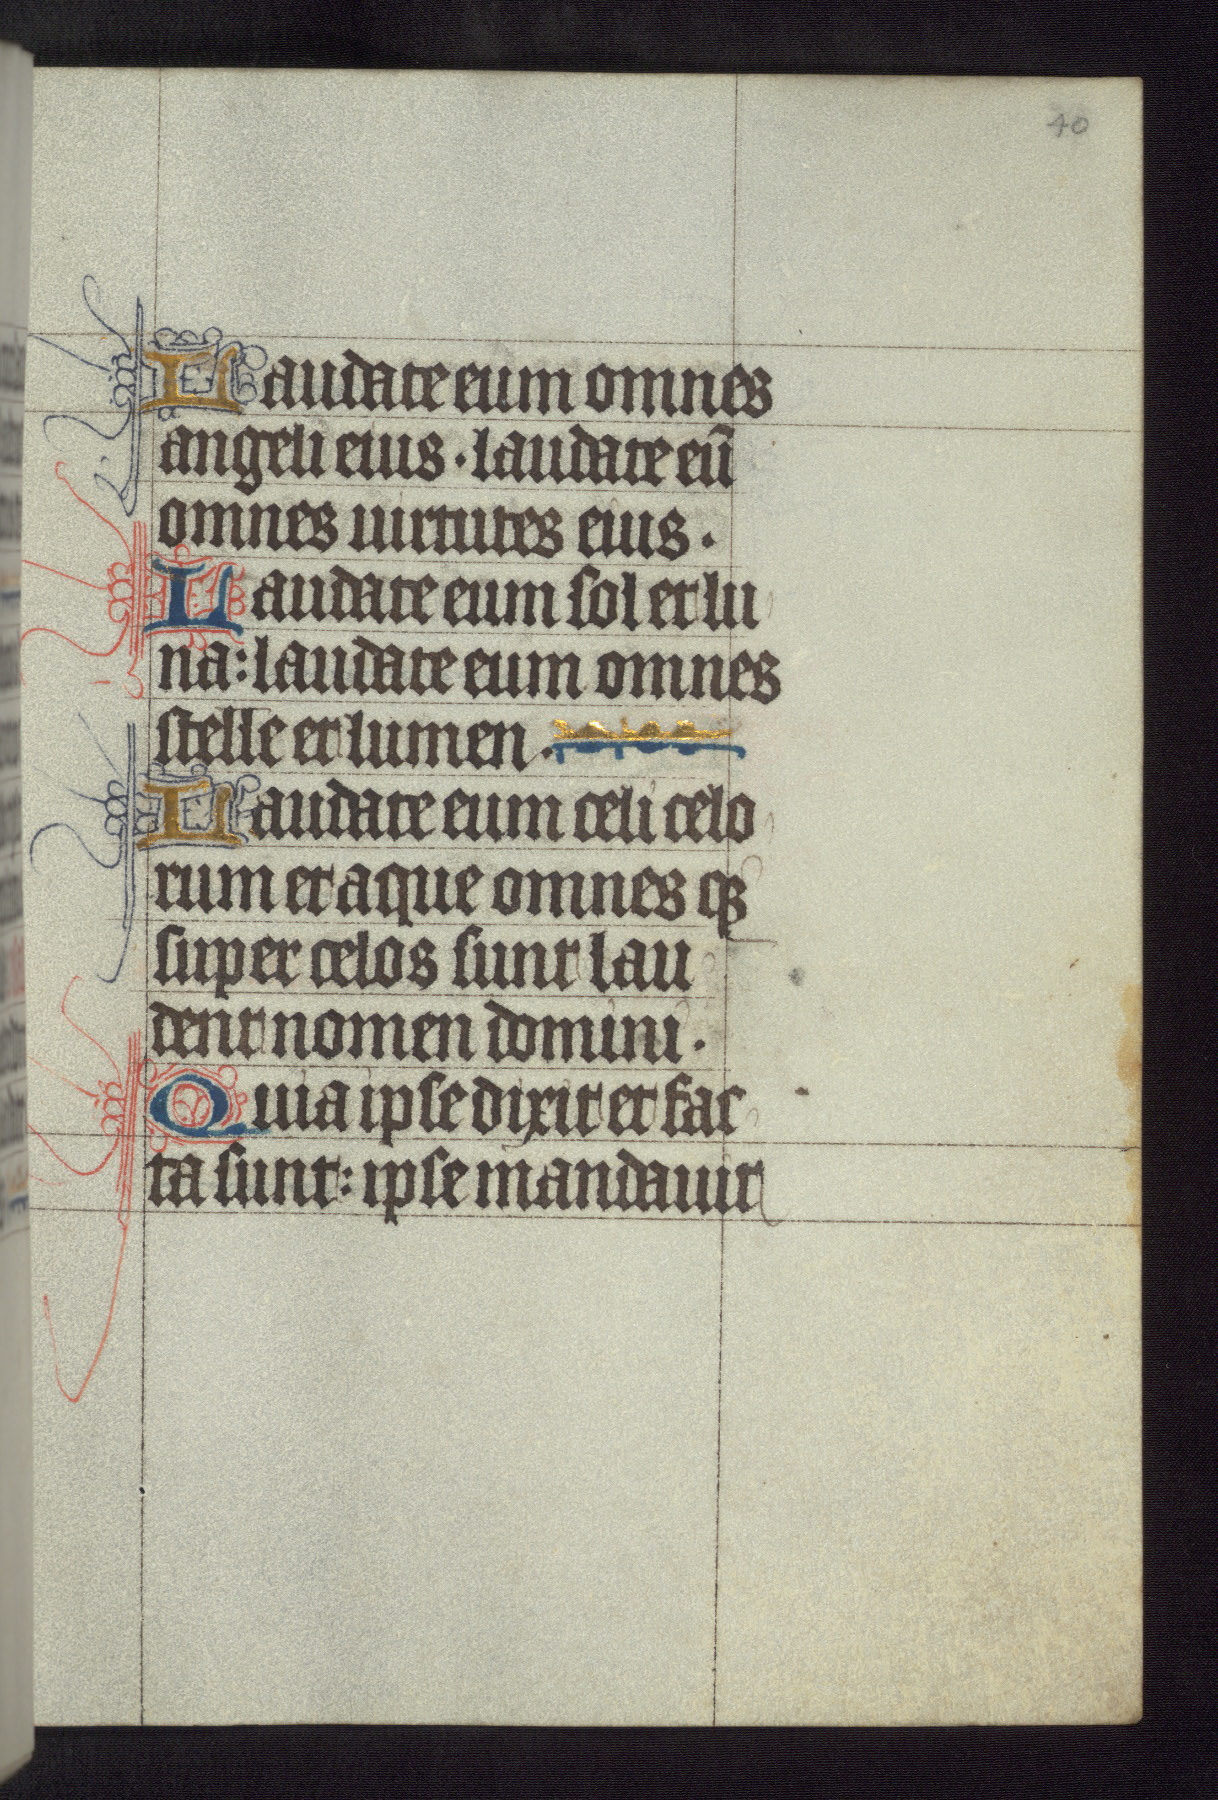 40
Laudate eum omnes
angeli eius · laudate eū
omnes uirtutes eius ·
Laudate eum sol et lu
na: laudate eum omnes
stelle et lumen ·
Laudate eum celi celo
rum et aque omnes q̄
super celos sunt lau
dent nomen domini ·
Quia ipse dixit et fac
ta sunt: ipse mandauit